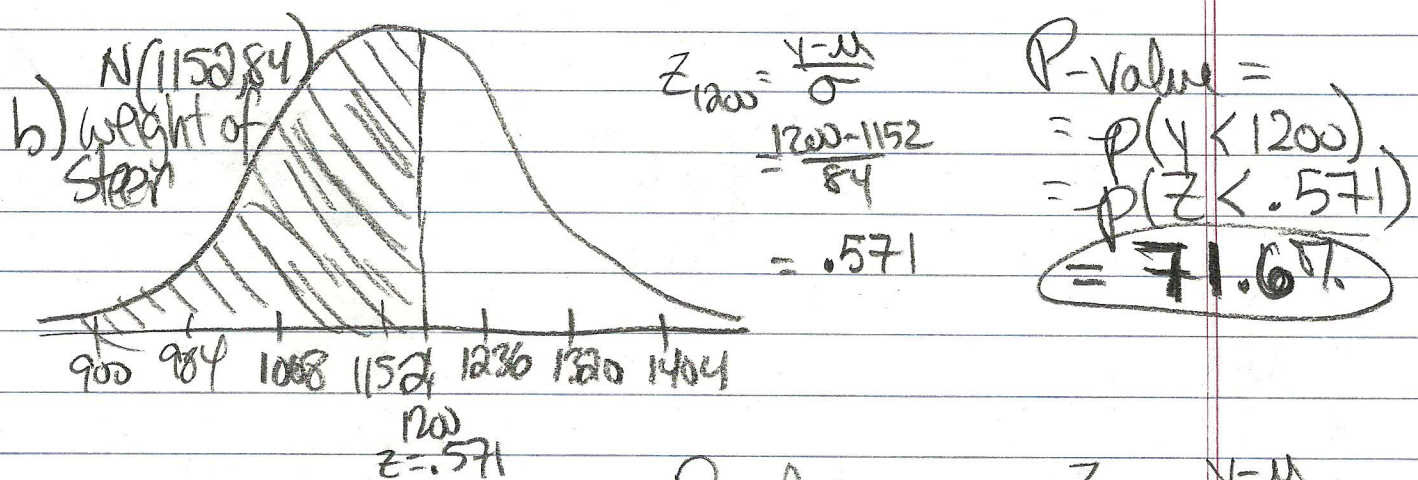 N(1152,84)
b) weight of
steer
900 984 1068 1152 1236 1320 1404
1200
z=.571
Z1200 = y-μ/σ
= 1200-1152/84
= .571
P-value =
= p(y < 1200)
= p(z < .571)
= 71.6%
y-μ